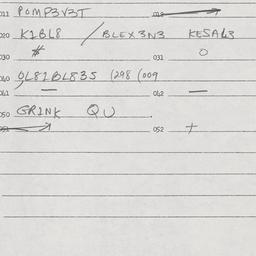 011 POMP3V3T 012
020 K1BL8 / BLEX3N3 KESAL3
030 # 031 O
040 0L81BL835 (298 (009
041 — 042 —
050 GRINK QU .
051 052 +